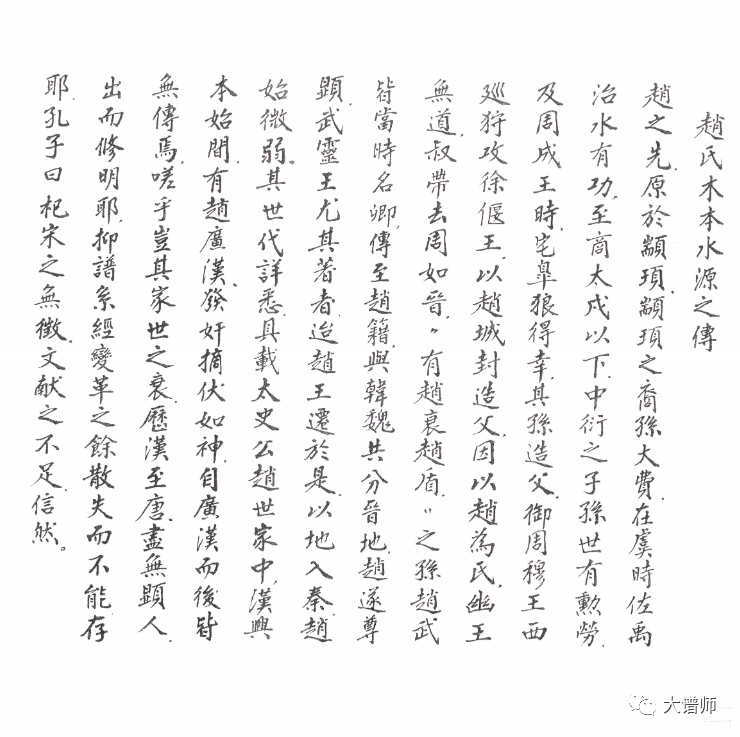 趙氏木本水源之傳
趙之先.原於顓頊.顓頊之裔孫大費.在虞時佐禹
治水有功.至商太戊以下.中衍之子孫世有勲勞.
及周成王時.宅臯狼得幸.其孫造父.御周穆王西
廵狩攻徐偃王.以趙城封造父.因以趙為氏.幽王
無道.叔帶去周如晉.〃有趙衰趙盾〃之孫趙武
皆當時名卿.傳至趙籍.與韓魏共分晉地.趙遂尊
顕.武靈王尤其著者.迨趙王遷於是以地入秦.趙
始微弱。其世代詳悉.具載太史公趙世家中.漢興
本始間.有趙廣漢.發奸摘伏如神.自廣漢而後皆
無傳焉.嗟乎豈其家世之衰.歷漢至唐.盡無顕人.
出而修明耶.抑譜系經變革之餘散失而不能存
耶.孔子曰杞宋之無徵.文献之不足.信然。
大谱师